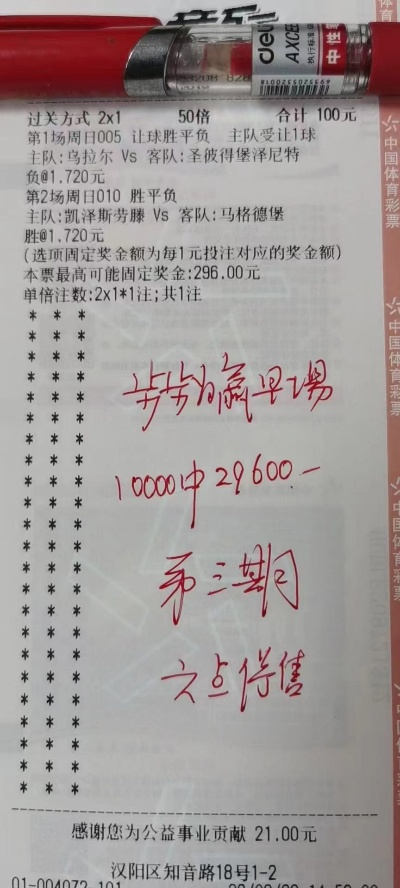 deli
AXCE
执行标准
6935205320018
过关方式 2x1 50倍 合计 100元
第1场周日005 让球胜平负 主队受让1球
主队:乌拉尔 Vs 客队:圣彼得堡泽尼特
负@1.720元
第2场周日010 胜平负
主队:凯泽斯劳滕 Vs 客队:马格德堡
胜@1.720元
(选项固定奖金额为每1元投注对应的奖金额)
本票最高可能固定奖金:296.00元
单倍注数:2x1*1注;共1注
步步为赢早场
10000中29600.-
第三期
六点停售
感谢您为公益事业贡献 21.00元
汉阳区知音路18号1-2
01-004072-101
中国体育彩票
中国体育彩票
中国体育彩票
中国体育彩票